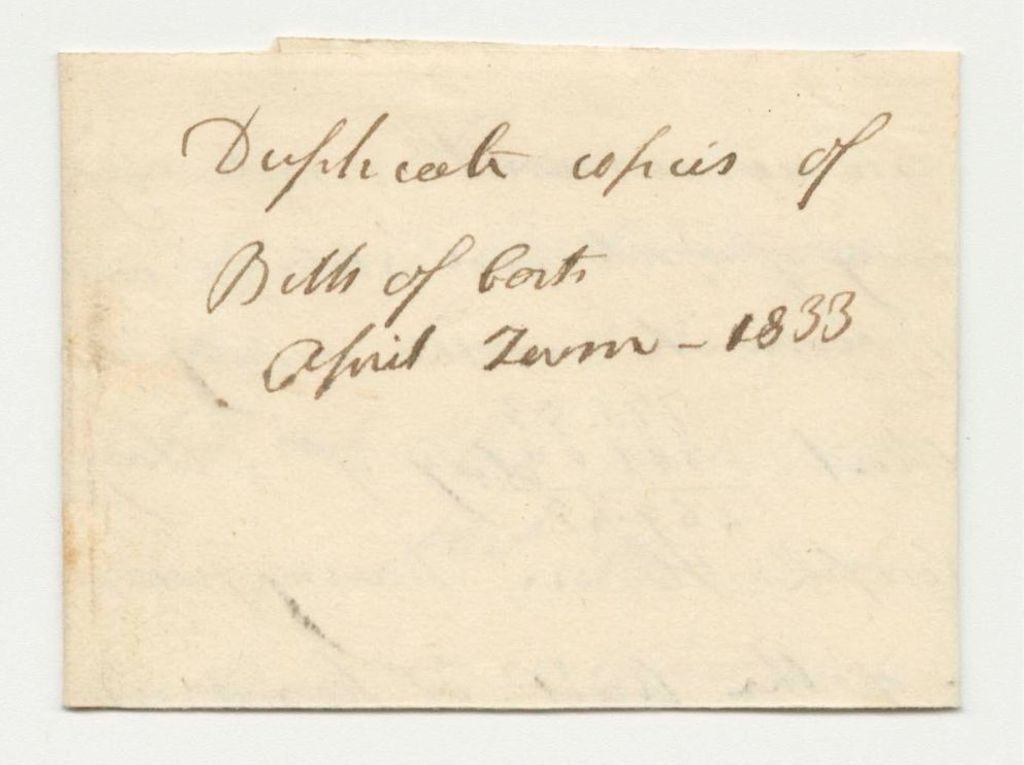 Duplicate copies of
Bills of Costs
April Term - 1833